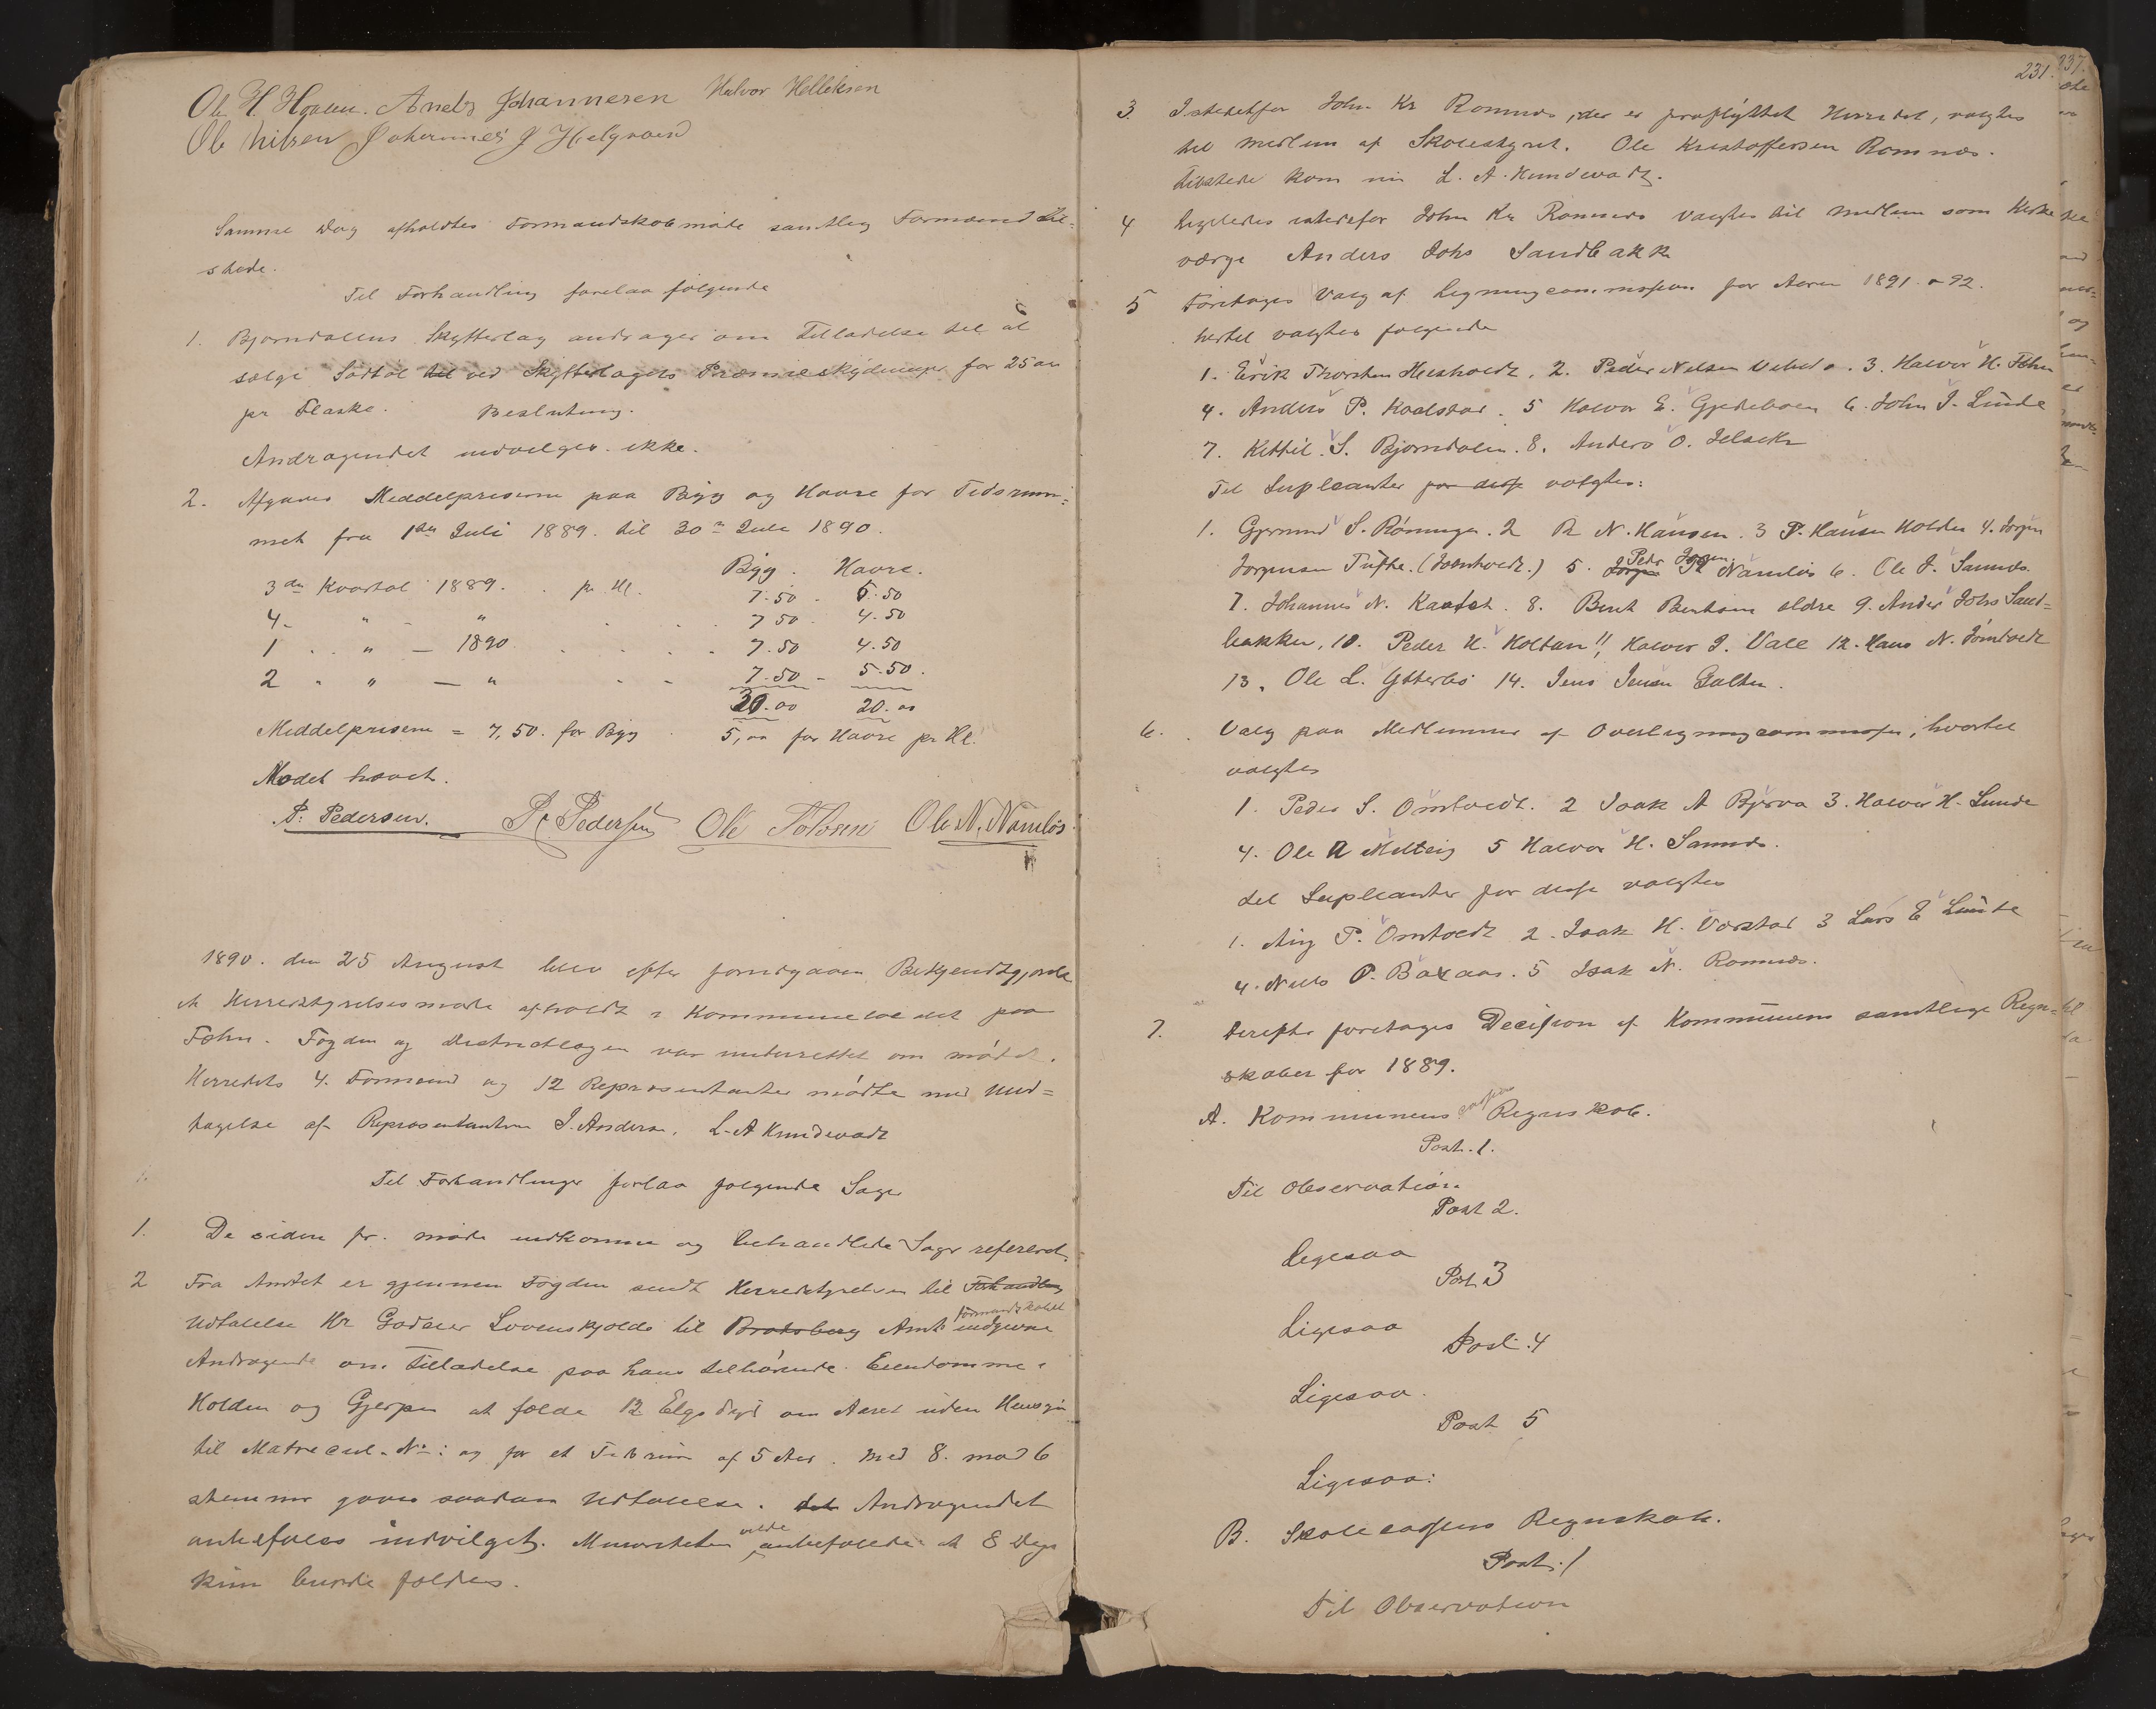 Ole H. Hoven. Anders Johannesen Halvor Helleksen
Ole Nilsen Johannes J Helgraven
Samme Dag afholdtes Formandskabsmøde samtlig Formænd Til=
stede.
Til Forhandling forelaa følgende
1. Bjørndalens Skytterlag andrager om Tilladelse til at
sælge Sødtøl til ved Skytterlagets Præmieskydninger for 25 øre
pr Flaske. Beslutning.
Andragendet indvilges ikke.
2. Afgaves Meddelpriserne paa Byg og Havre for Tidsrum=
met fra 1ste Juli 1889. til 30te Juli 1890.
Byg. Havre.
3die Kvartal 1889. pr. Hl. 7.50 - 5.50
4 - " - " 7 50 - 4.50
1 " - 1890 7.50 4.50
2 " " - " 7.50 - 5.50.
30.00 20.00
Meddelpriserne = 7,50. for Byg 5,00 for Havre pr Hl.
Mødet hævet.
P. Pedersen. P. Pedersen Ole Tolvsen Ole N. Namløs
1890. den 25 August blev efter forudgaaen Bekjendtgjørelse
et Herredstyrelsesmøde afholdt i Kommunelocalet paa
Fæhn. Fogden og Districtlægen var underrettet om mødet.
Herredets 4. Formænd og 12 Repræsentanter mødte med und=
tagelse af Repræsentanterne J. Anders. L. A Kundewadt
Til Forhandlinger forlaa følgende Sager
1. De siden fr. møde indkomne og behandlede Sager refererd.
2 Fra Amtet er gjennem Fogden sendt Herredstyrelsen til Forhandling
formandskabet
Udtalelse Hr Godseier Løvenskjolds til Bratsberg Amt indgivne
Andragende om Tilladelse paa hans tilhørende Eiendomme i
Holden og Gjerpen at fælde 12 Elgsdyr om Aaret uden Hensyn
til Matrecul-No: og for et Tidsrum af 5 Aar. Med 8. mod 6
stemmer gaves saadan Udtalelse. det Andragendet
anbefales indvilget. Minoriteten vilde anbefalede at 8 Dyr
kun burde fældes.
231. 237.
3. Istedetfor John Kr Romnæs, der er fraflyttet Herredet, valgtes
til medlem af Skolestyret. Ole Kristoffersen Romnæs.
tilstede kom nu L. A. Kundewadt.
4 Ligeledes istedefor John Kr Romnæs valgtes til medlem som Kirke
værge Anders Johs Sandbakk
5 Foretages Valg af Ligningcommissjon for Aaren 1891 - 92.
hertil valgtes følgende
1. Erik Thorsten Hesholdt. 2. Peder Nielsen Vebedo. 3. Halvor H. Fæhn
4. Anders P. Kaalstad. 5 Halvor E. Gjedeboen 6. John J. Lunde
7. Kittil S. Bjørndalen. 8. Anders O. Jelsek
Til Supleanter for disse valgtes:
1. Gjermund S. Rønningen. 2 R N. Hansen. 3 P. Hansen Holden 4. Jørgen
Jørgensen Tufte. (Jomholdt.) 5. Peder Jørgen Namløs 6. Ole J. Saunds.
7. Johannes N. Kaasa. 8. Bent Bentsen ældre 9. Anders Johs Sand=
bakken, 10. Peder H. Holtan 11, Halvor J. Vale 12. Hans N. Jomtvedt
13. Ole L. Ytterbø 14. Jens Jensen Galten.
6. Valg paa Medlemmer af Overligningcommissjon, hvortil
valgtes
1. Peder S. Omtvedt. 2 Isak A Bjerva 3. Halvor H. Lunde
4. Ole A Melteig 5 Halvor H. Saunds.
til Supleanter for disse valgtes
1. Aug P. Omtvedt 2. Isak H. Vorstad 3 Lars E Lunde
4. Niels P. Baxaas. 5 Isak N. Romnæs.
7. Derefter foretages Decision af Kommunens samtlige Regn=
skaber for 1889.
A. Kommunens cassen Regnskab.
Post. 1.
Til Observation
Post 2.
Ligesaa
Post 3
Ligesaa
Post. 4
Ligesaa.
Post 5
Ligesaa:
B. Skolecassens Regnskab.
Post. 1
Til Observation